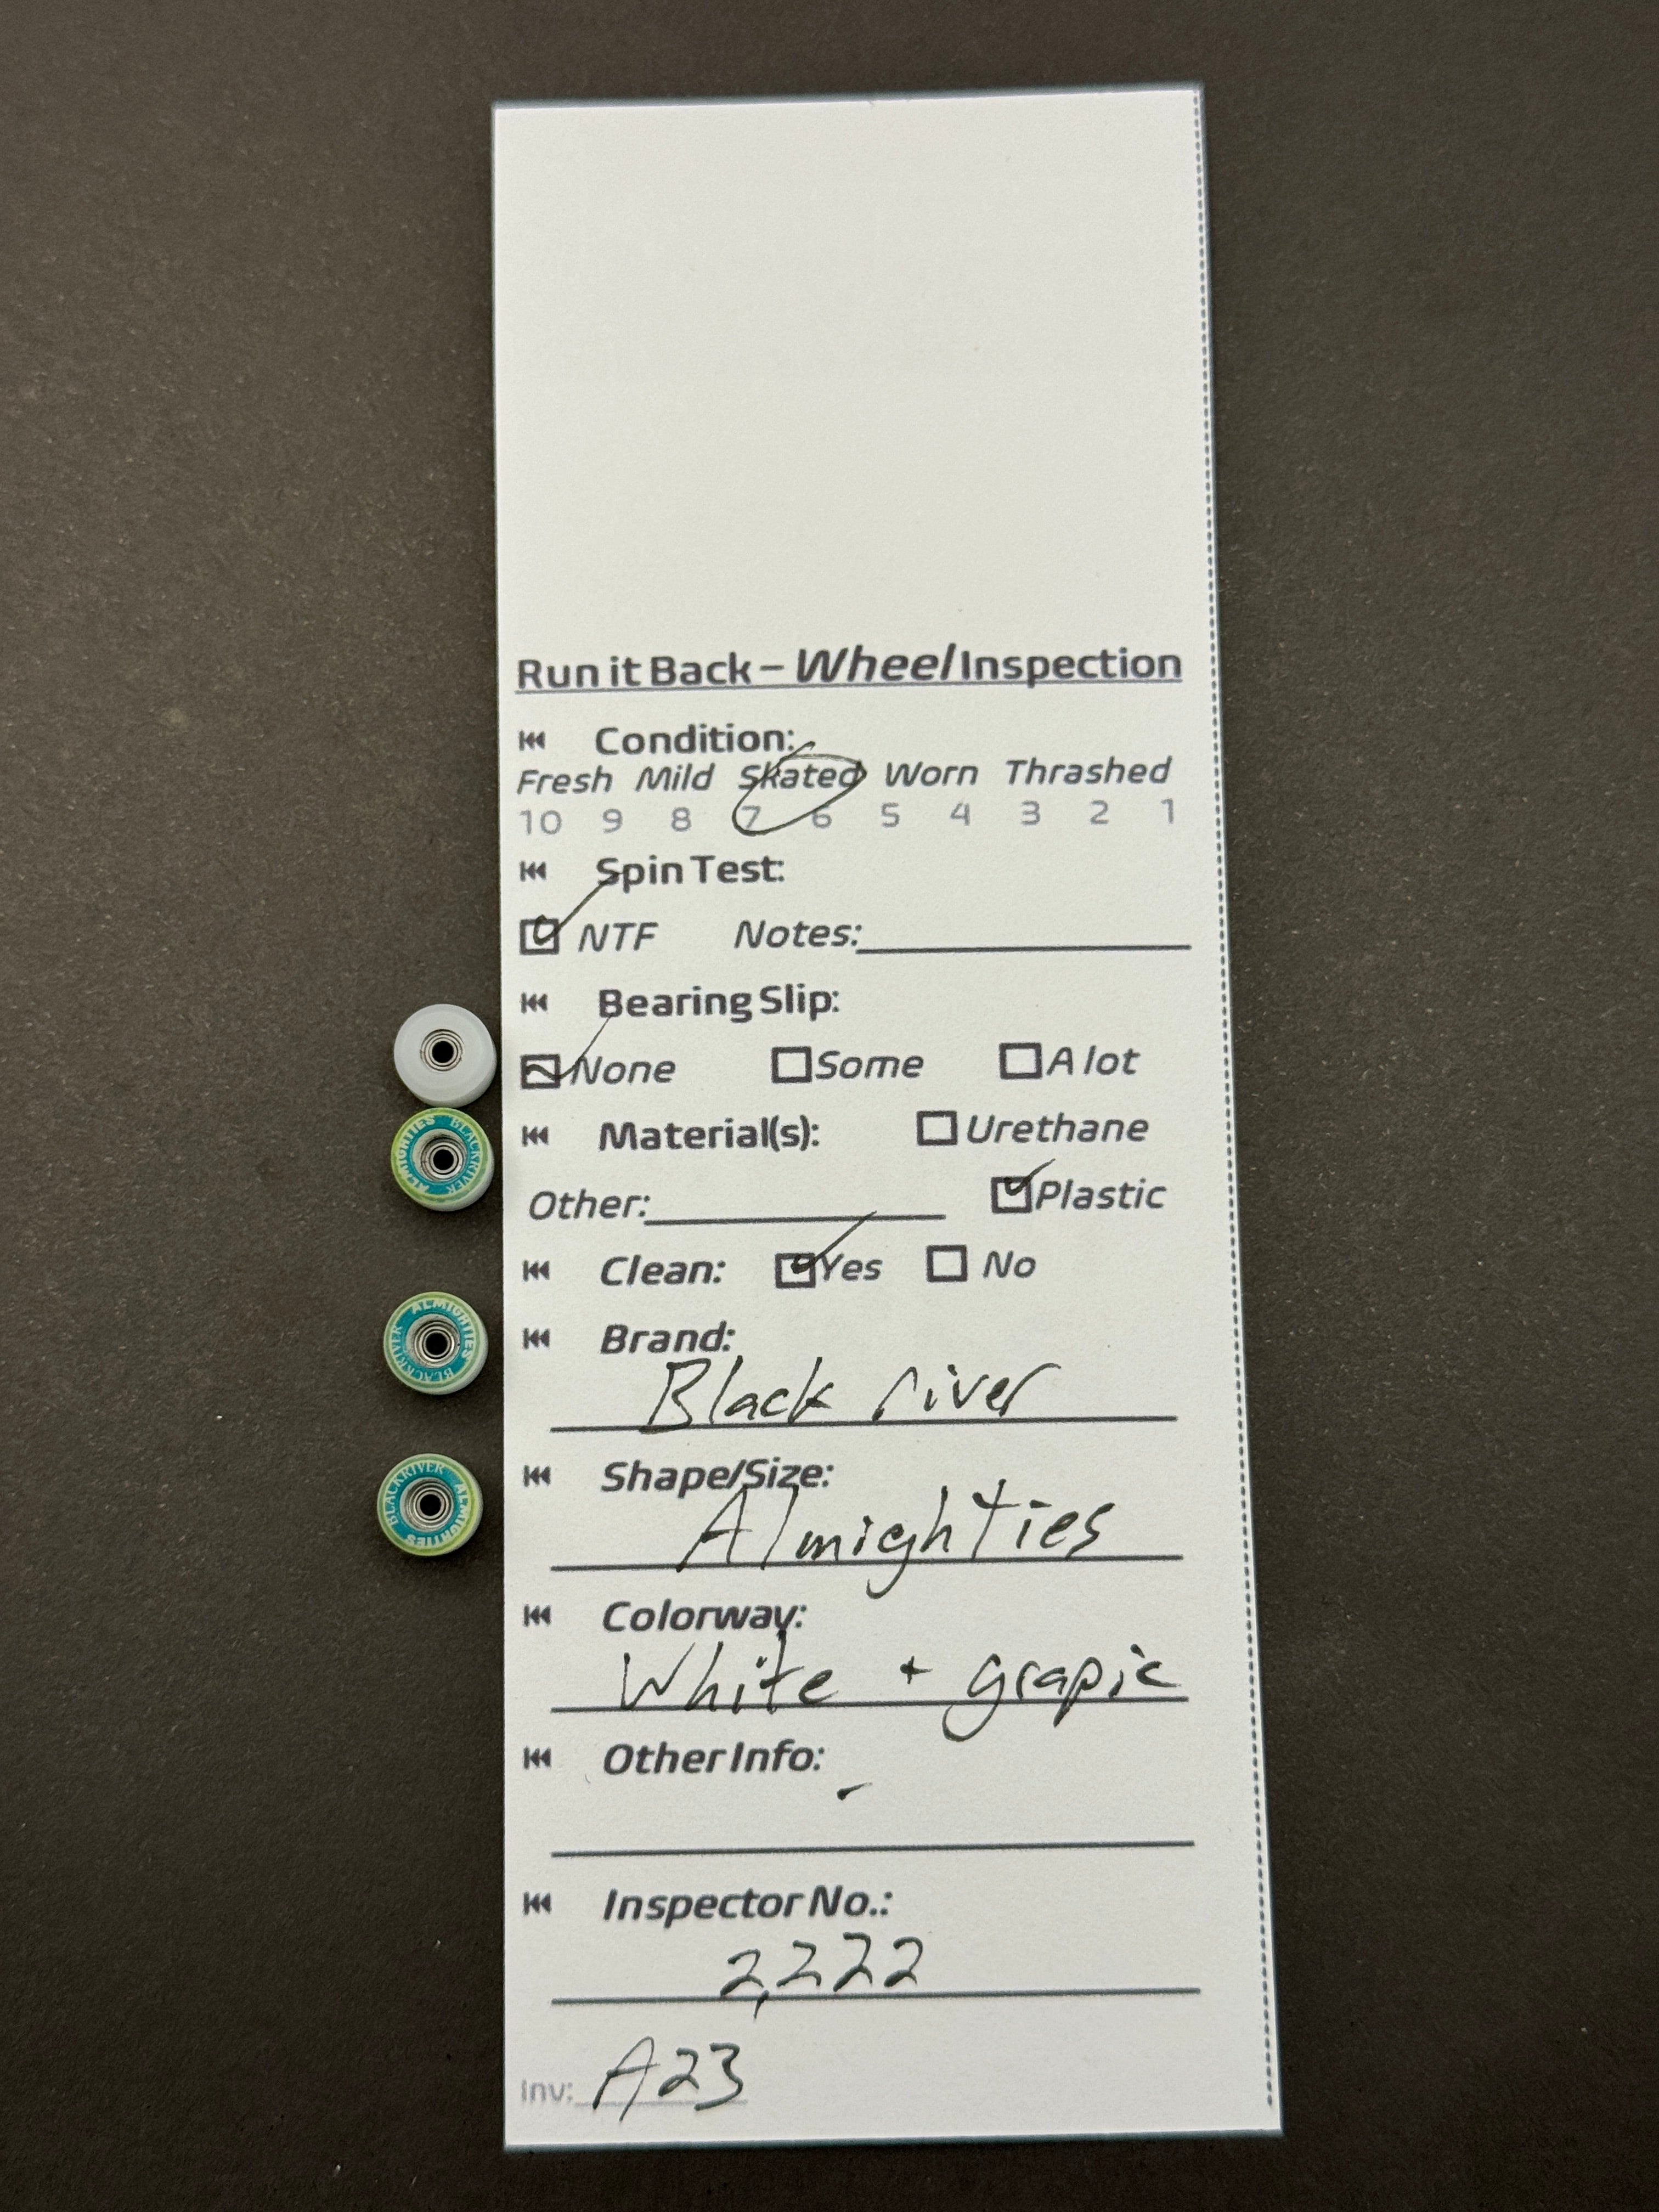 Run it Back – Wheel Inspection
Condition:
Fresh Mild Skated Worn Thrashed
10 9 8 7 6 5 4 3 2 1
Spin Test:
NTF Notes:
Bearing Slip:
None Some A lot
Material(s): Urethane
Other: Plastic
Clean: Yes No
Brand:
Black river
Shape/Size:
Almighties
Colorway:
White + grapic
Other Info:
-
Inspector No.:
2,222
Inv: A23
ALMIGHTIES BLACKRIVER
ALMIGHTIES BLACKRIVER
BLACKRIVER ALMIGHTIES